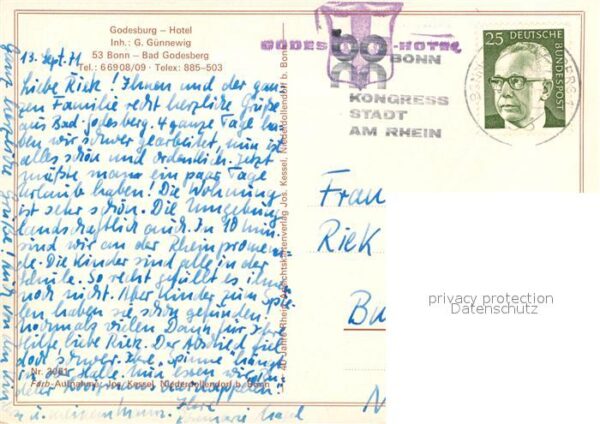 Godesburg - Hotel
Inh.: G. Günnewig
53 Bonn - Bad Godesberg
Tel.: 6 68 09/09 · Telex: 885-503
13. Sept. 71
Liebe Frau Riek! Ihnen und der gan-
zen Familie recht herzliche Grüße
aus Bad-Godesberg. 4 ganze Tage ha-
ben wir schwer gearbeitet, nun ist
alles schön und ordentlich. Jetzt
müßte man ein paar Tage
Urlaub haben! Die Wohnung
ist sehr schön. Die Umgebung
landschaftlich auch. In 10 Min.
sind wir an der Rheinprome-
nade. Die Kinder sind alle in der
Schule. So recht gefällt es ihnen
noch nicht. Aber Kinder zum Spie-
len haben sie schon gefunden!
Nochmals vielen Dank für Ihre
Hilfe, liebe Frau Riek. Der Abschied fiel
doch schwer. Ihre "Spinne" hängt
in der Halle. Nun essen wir
Nr. 3081
Farb-Aufnahme: Jos. Kessel, Niederdollendorf b. Bonn
u. meinem Mann. Ihre
Ganz herzliche Grüße! Auch von den
Ansichtskartenverlag Jos. Kessel, Niederdollendorf b. Bonn
GODES -HOTEL
BONN
KONGRESS
STADT
AM RHEIN
25 DEUTSCHE
BUNDESPOST
Frau
Riek
privacy protection
Datenschutz